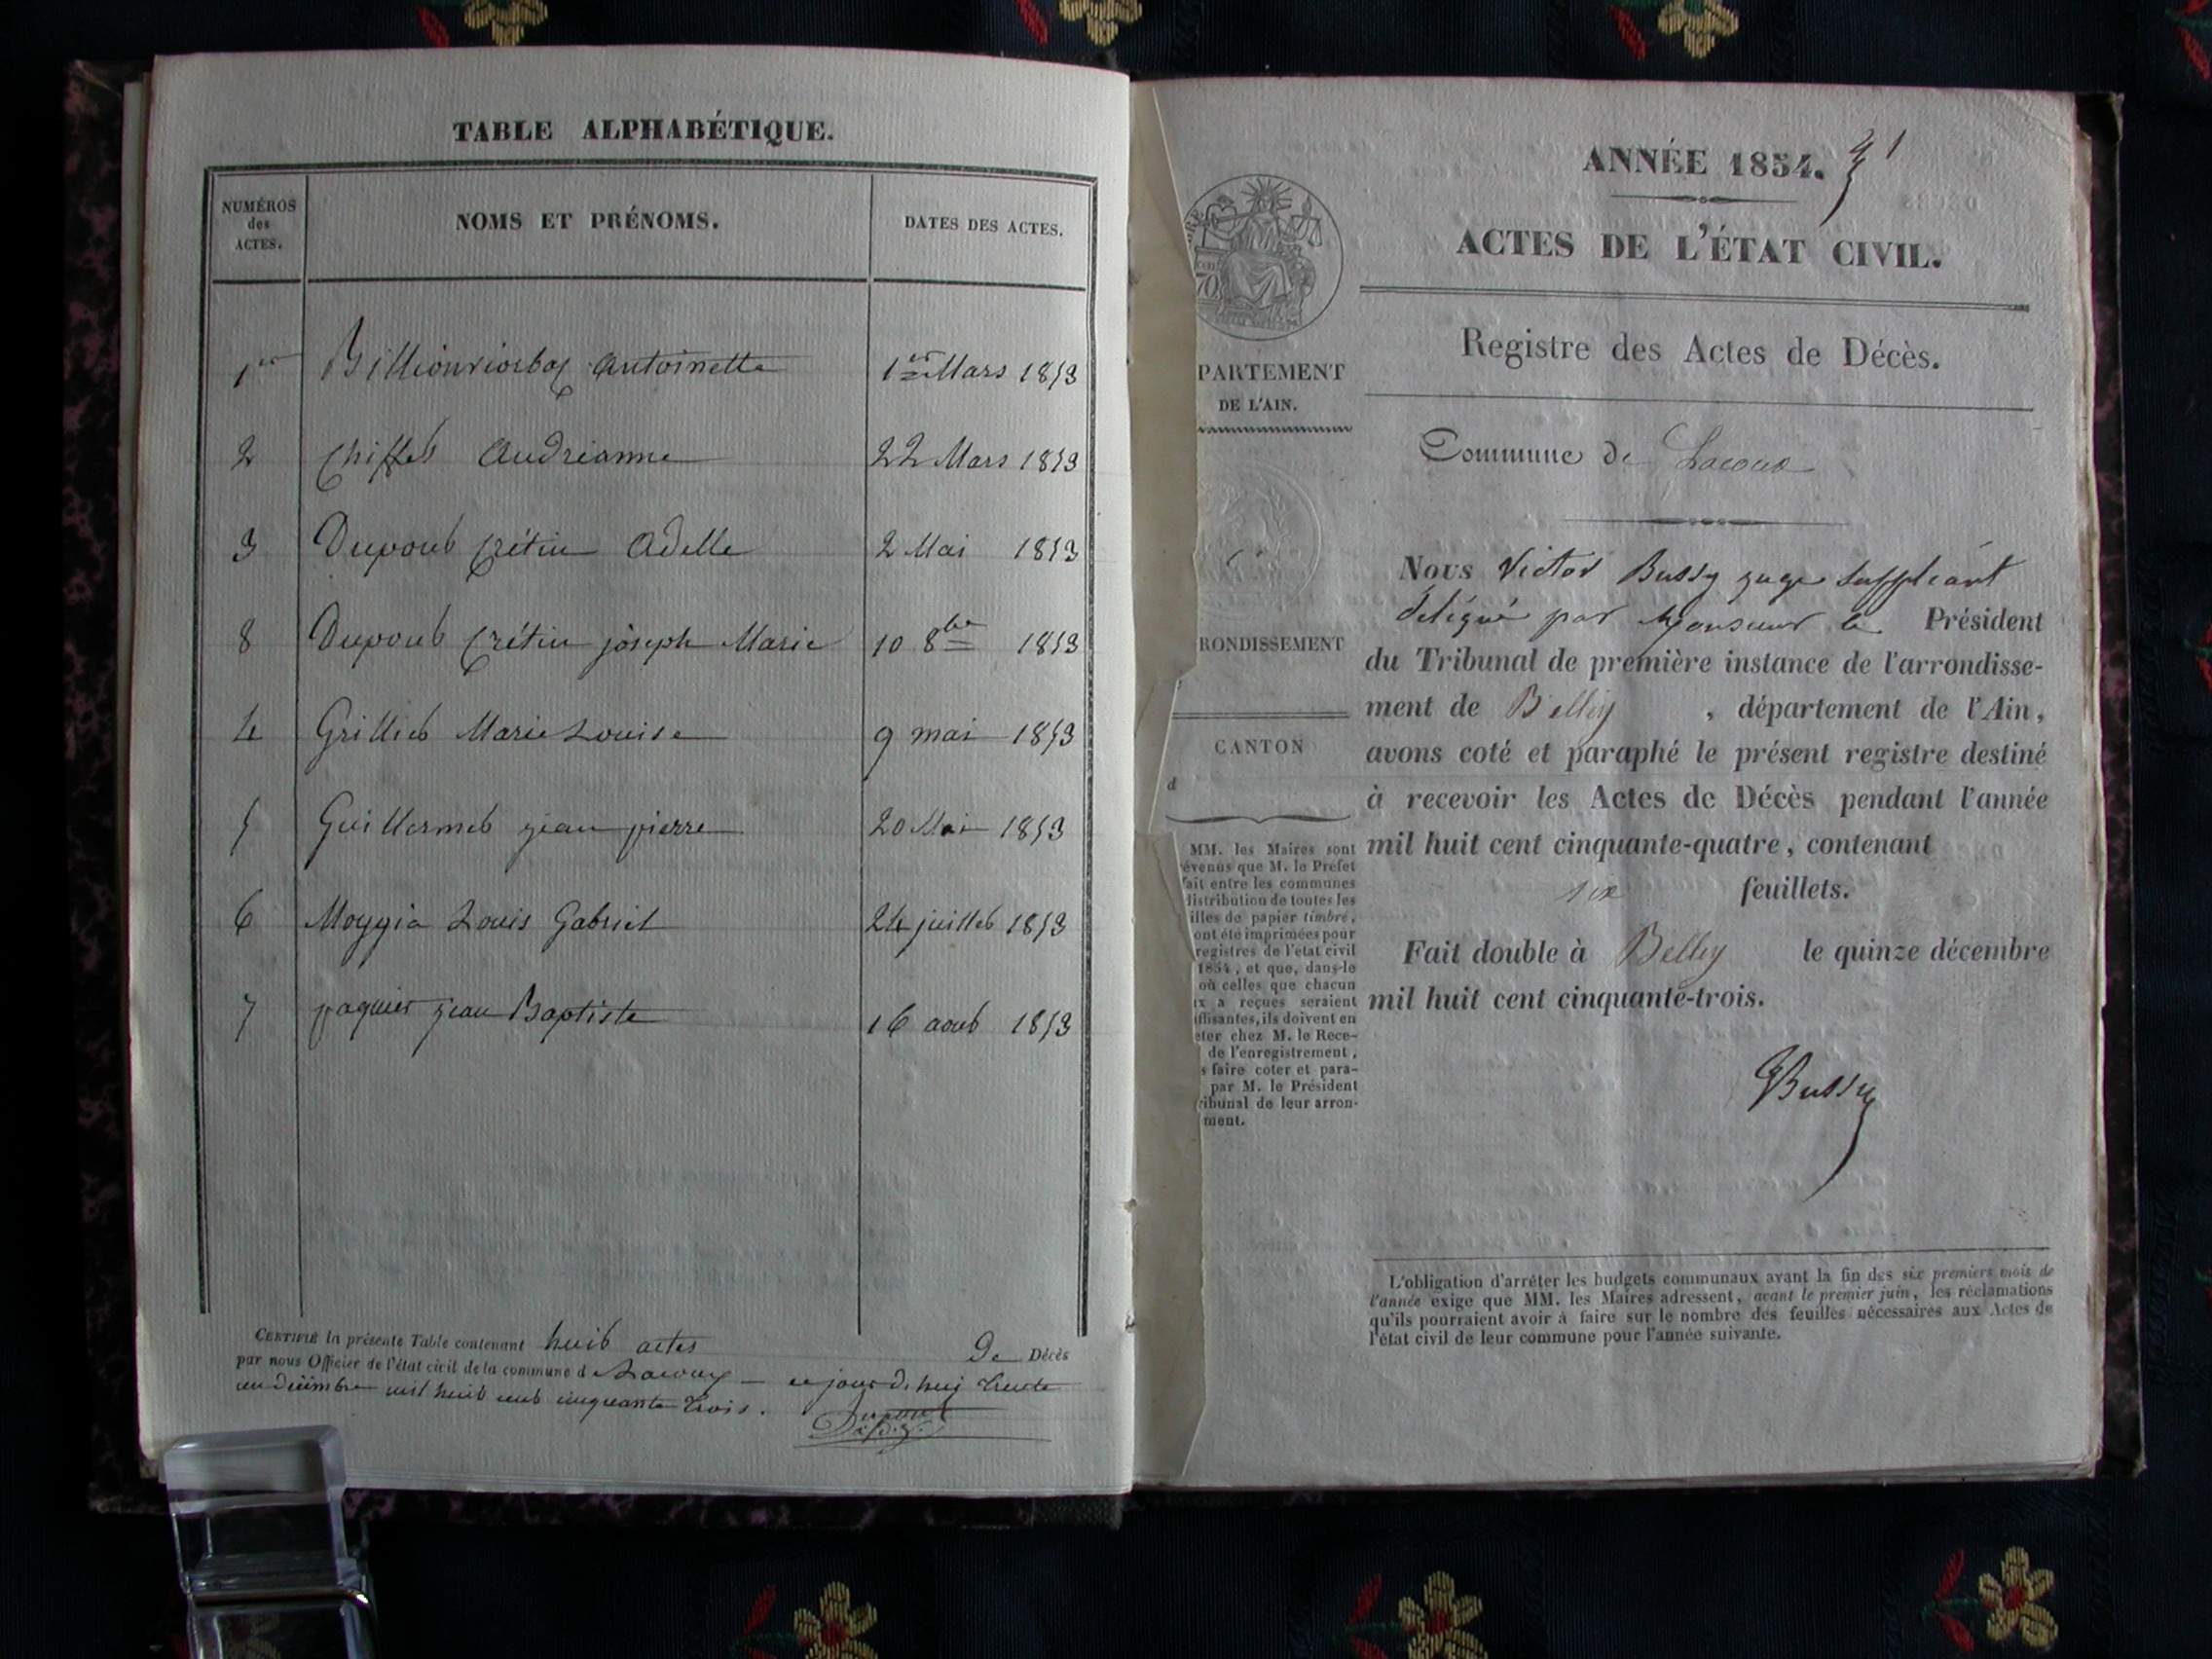 TABLE ALPHABÉTIQUE.
NUMÉROS
des
ACTES.
NOMS ET PRÉNOMS.
DATES DES ACTES.
1er Antoinette 1er Mars 1853
2 Chiffet Audrianne 22 Mars 1853
3 Dupont Crétin Adelle 2 Mai 1853
8 Dupont Crétin joseph Marie 10 8bre 1853
4 Grillieb Marie Louise 9 mai 1853
5 Guillermet jean pierre 20 Mai 1853
6 Moggia Louis Gabriel 24 juillet 1853
7 paquier jean Baptiste 16 aout 1853
CERTIFIÉ la présente Table contenant huit actes De Décès
par nous Officier de l'état civil de la commune d Lacoux ce jour d'huy trente
un décembre mil huit cent cinquante trois.
ANNÉE 1854.
ACTES DE L'ÉTAT CIVIL.
Registre des Actes de Décès.
Commune de Lacoux
PARTEMENT
DE L'AIN.
RONDISSEMENT
CANTON
d
MM. les Maires sont
évenus que M. le Préfet
fait entre les communes
distribution de toutes les
illes de papier timbré,
ont été imprimées pour
registres de l'état civil
1854, et que, dans le
où celles que chacun
ux a reçues seraient
ffisantes, ils doivent en
eter chez M. le Rece-
de l'enregistrement,
s faire coter et para-
par M. le Président
ribunal de leur arron-
ment.
Nous Victor Bussy juge suppléant
délégué par Monsieur le Président
du Tribunal de première instance de l'arrondisse-
ment de Belley , département de l'Ain,
avons coté et paraphé le présent registre destiné
à recevoir les Actes de Décès pendant l'année
mil huit cent cinquante-quatre, contenant
six feuillets.
Fait double à Belley le quinze décembre
mil huit cent cinquante-trois.
Bussy
L'obligation d'arrêter les budgets communaux avant la fin des six premiers mois de
l'année exige que MM. les Maires adressent, avant le premier juin, les réclamations
qu'ils pourraient avoir à faire sur le nombre des feuilles nécessaires aux Actes de
l'état civil de leur commune pour l'année suivante.